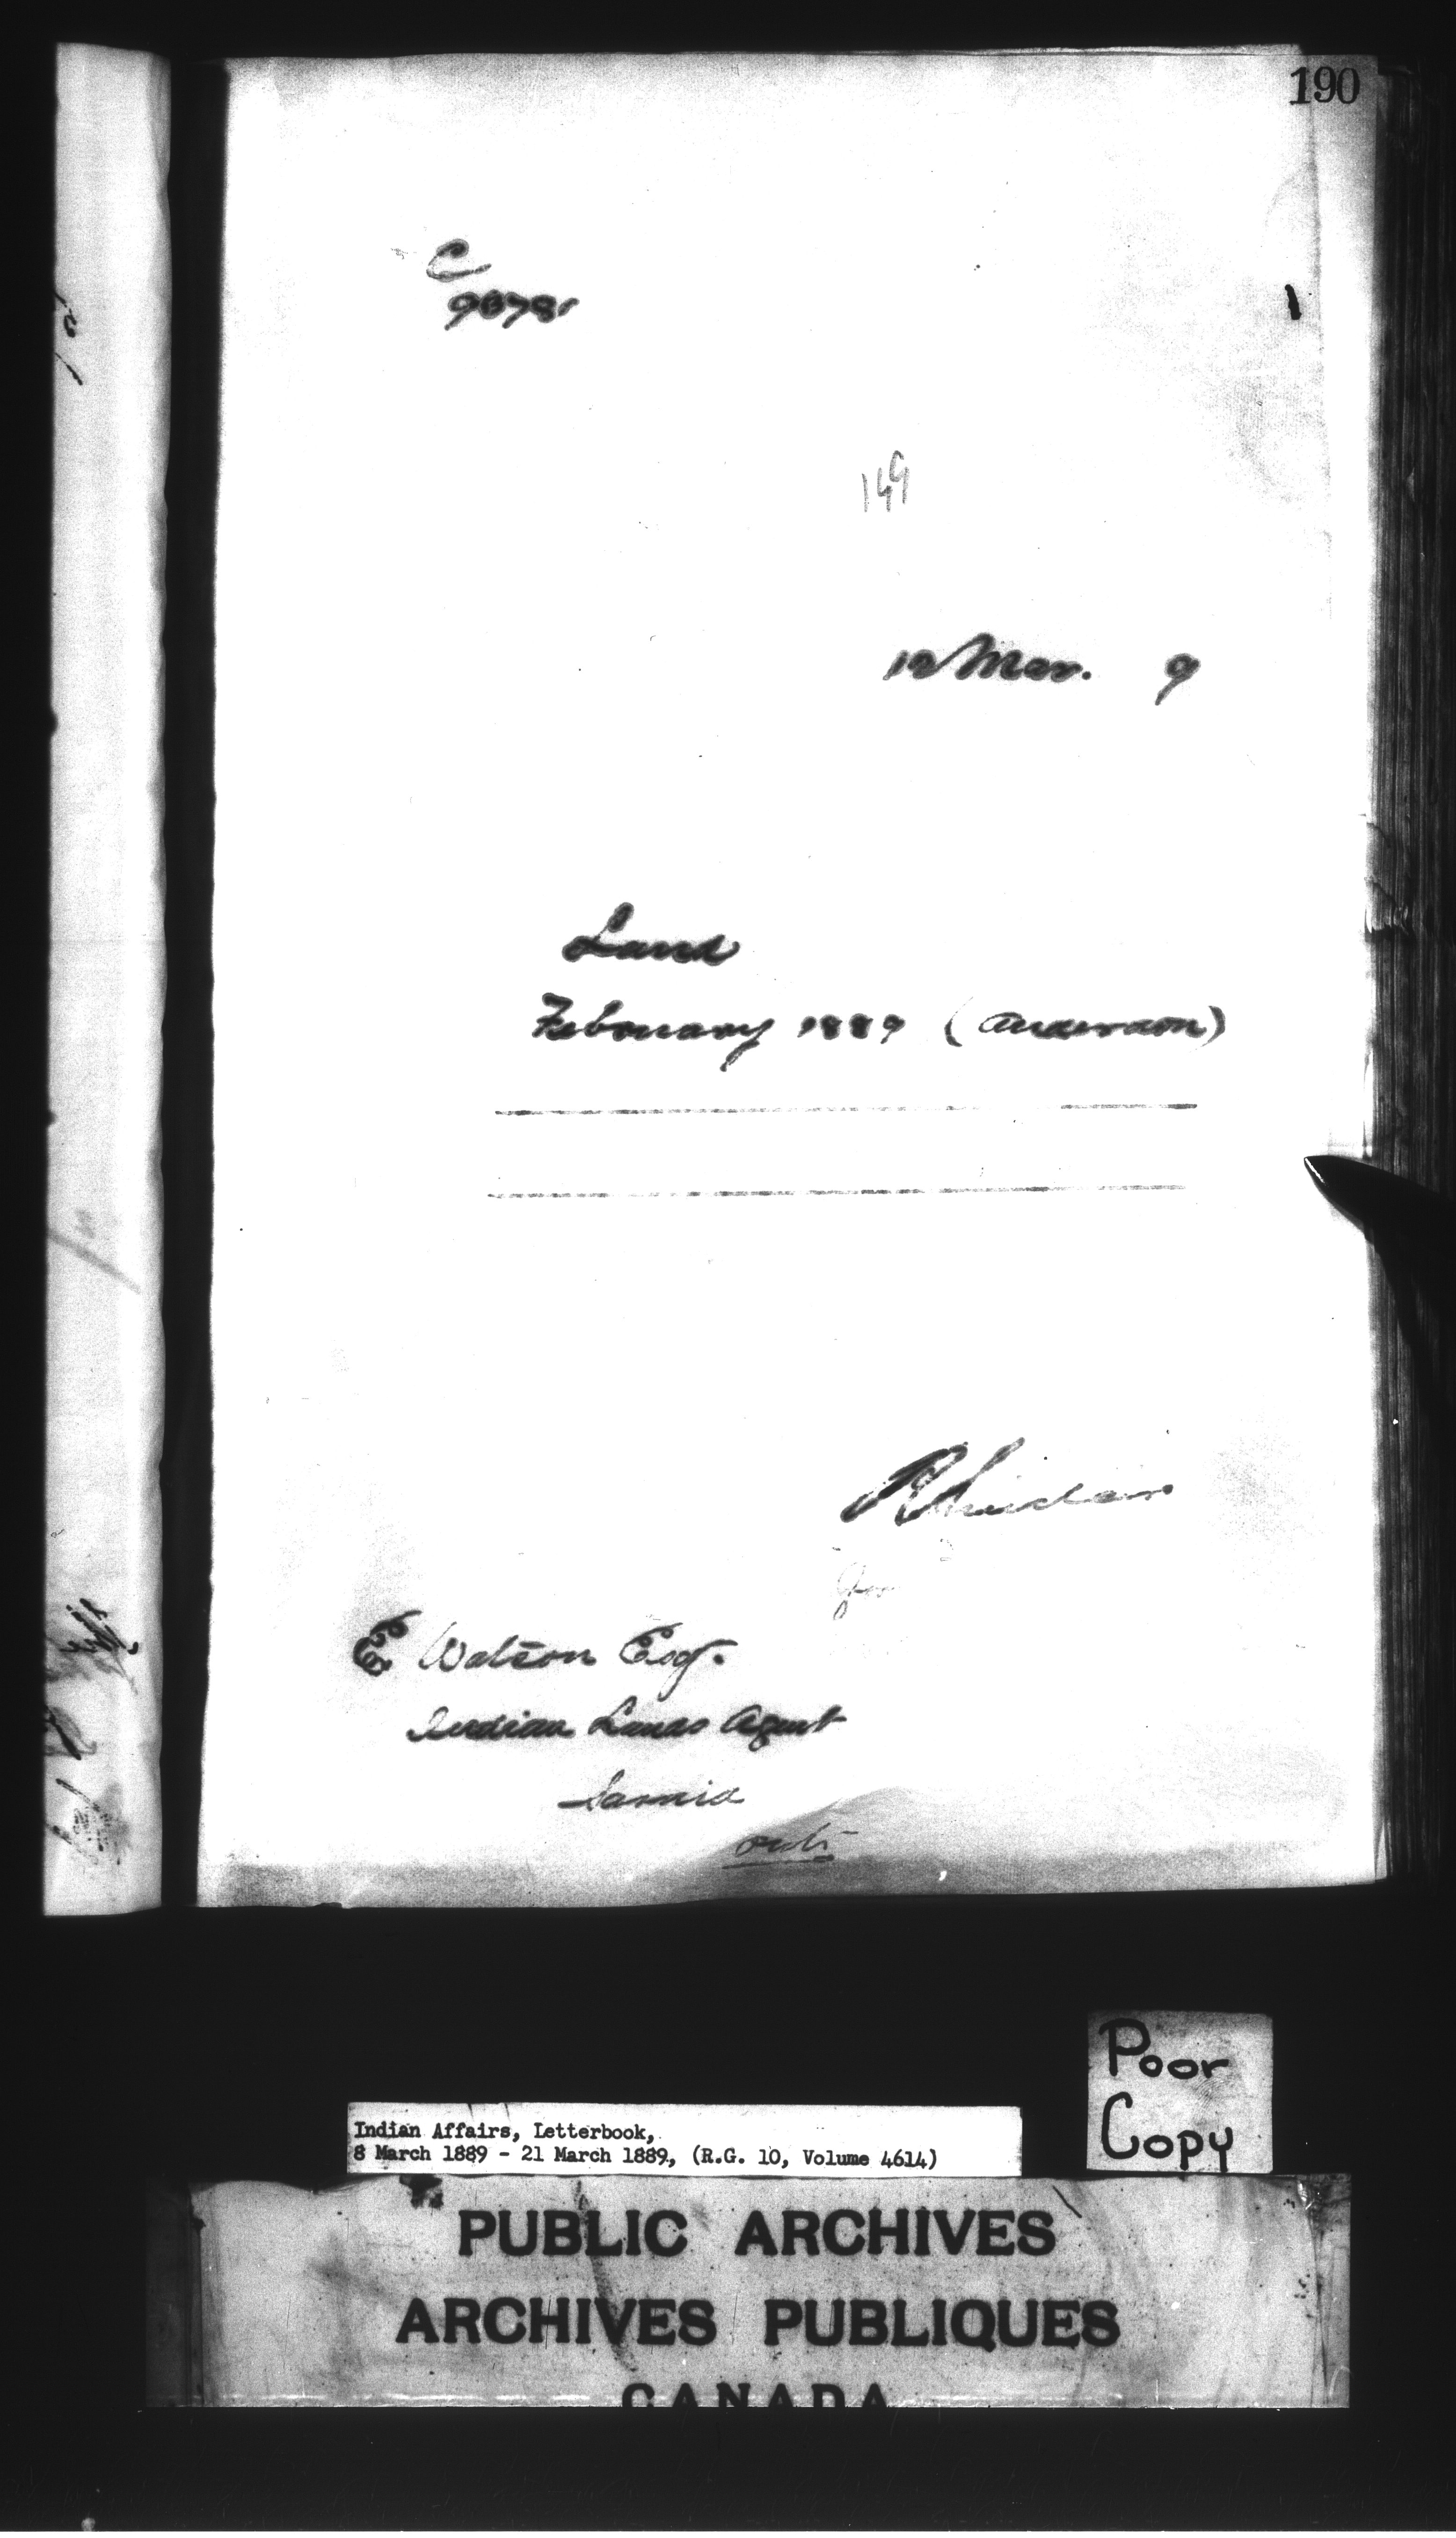 190
C
9878
149
12 Mar. 9
Land
February 1889 (Anderson)
R Sinclair
for
E Watson Esq.
Indian Lands Agent
Sarnia
Ont.
Poor
Copy
Indian Affairs, Letterbook,
8 March 1889 - 21 March 1889, (R.G. 10, Volume 4614)
PUBLIC ARCHIVES
ARCHIVES PUBLIQUES
CANADA